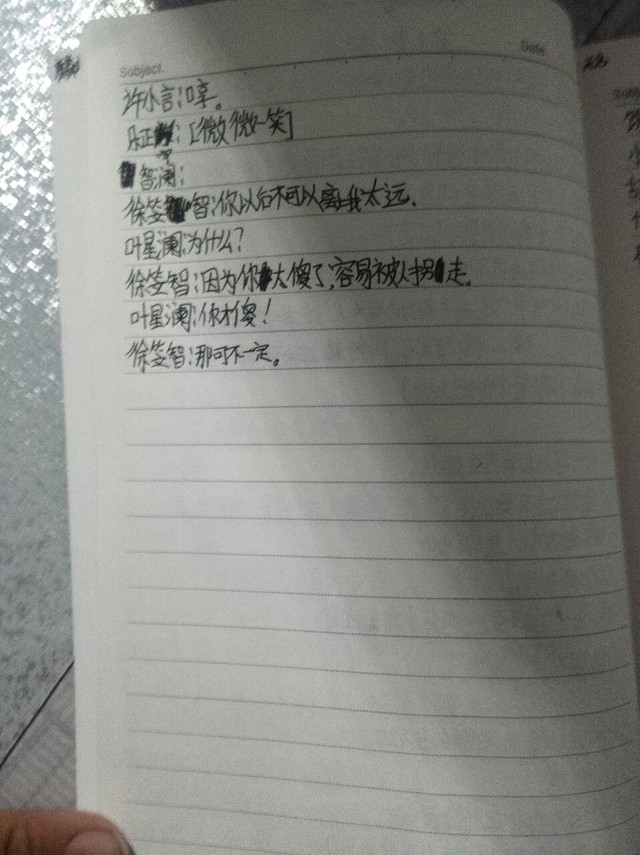 Subject.
Date
许小言:哼。
乐正:[微微一笑]
智澜:
徐笠智:你以后不可以离我太远.
叶星澜:为什么?
徐笠智:因为你太傻了,容易被人拐走.
叶星澜:你才傻!
徐笠智:那可不一定。